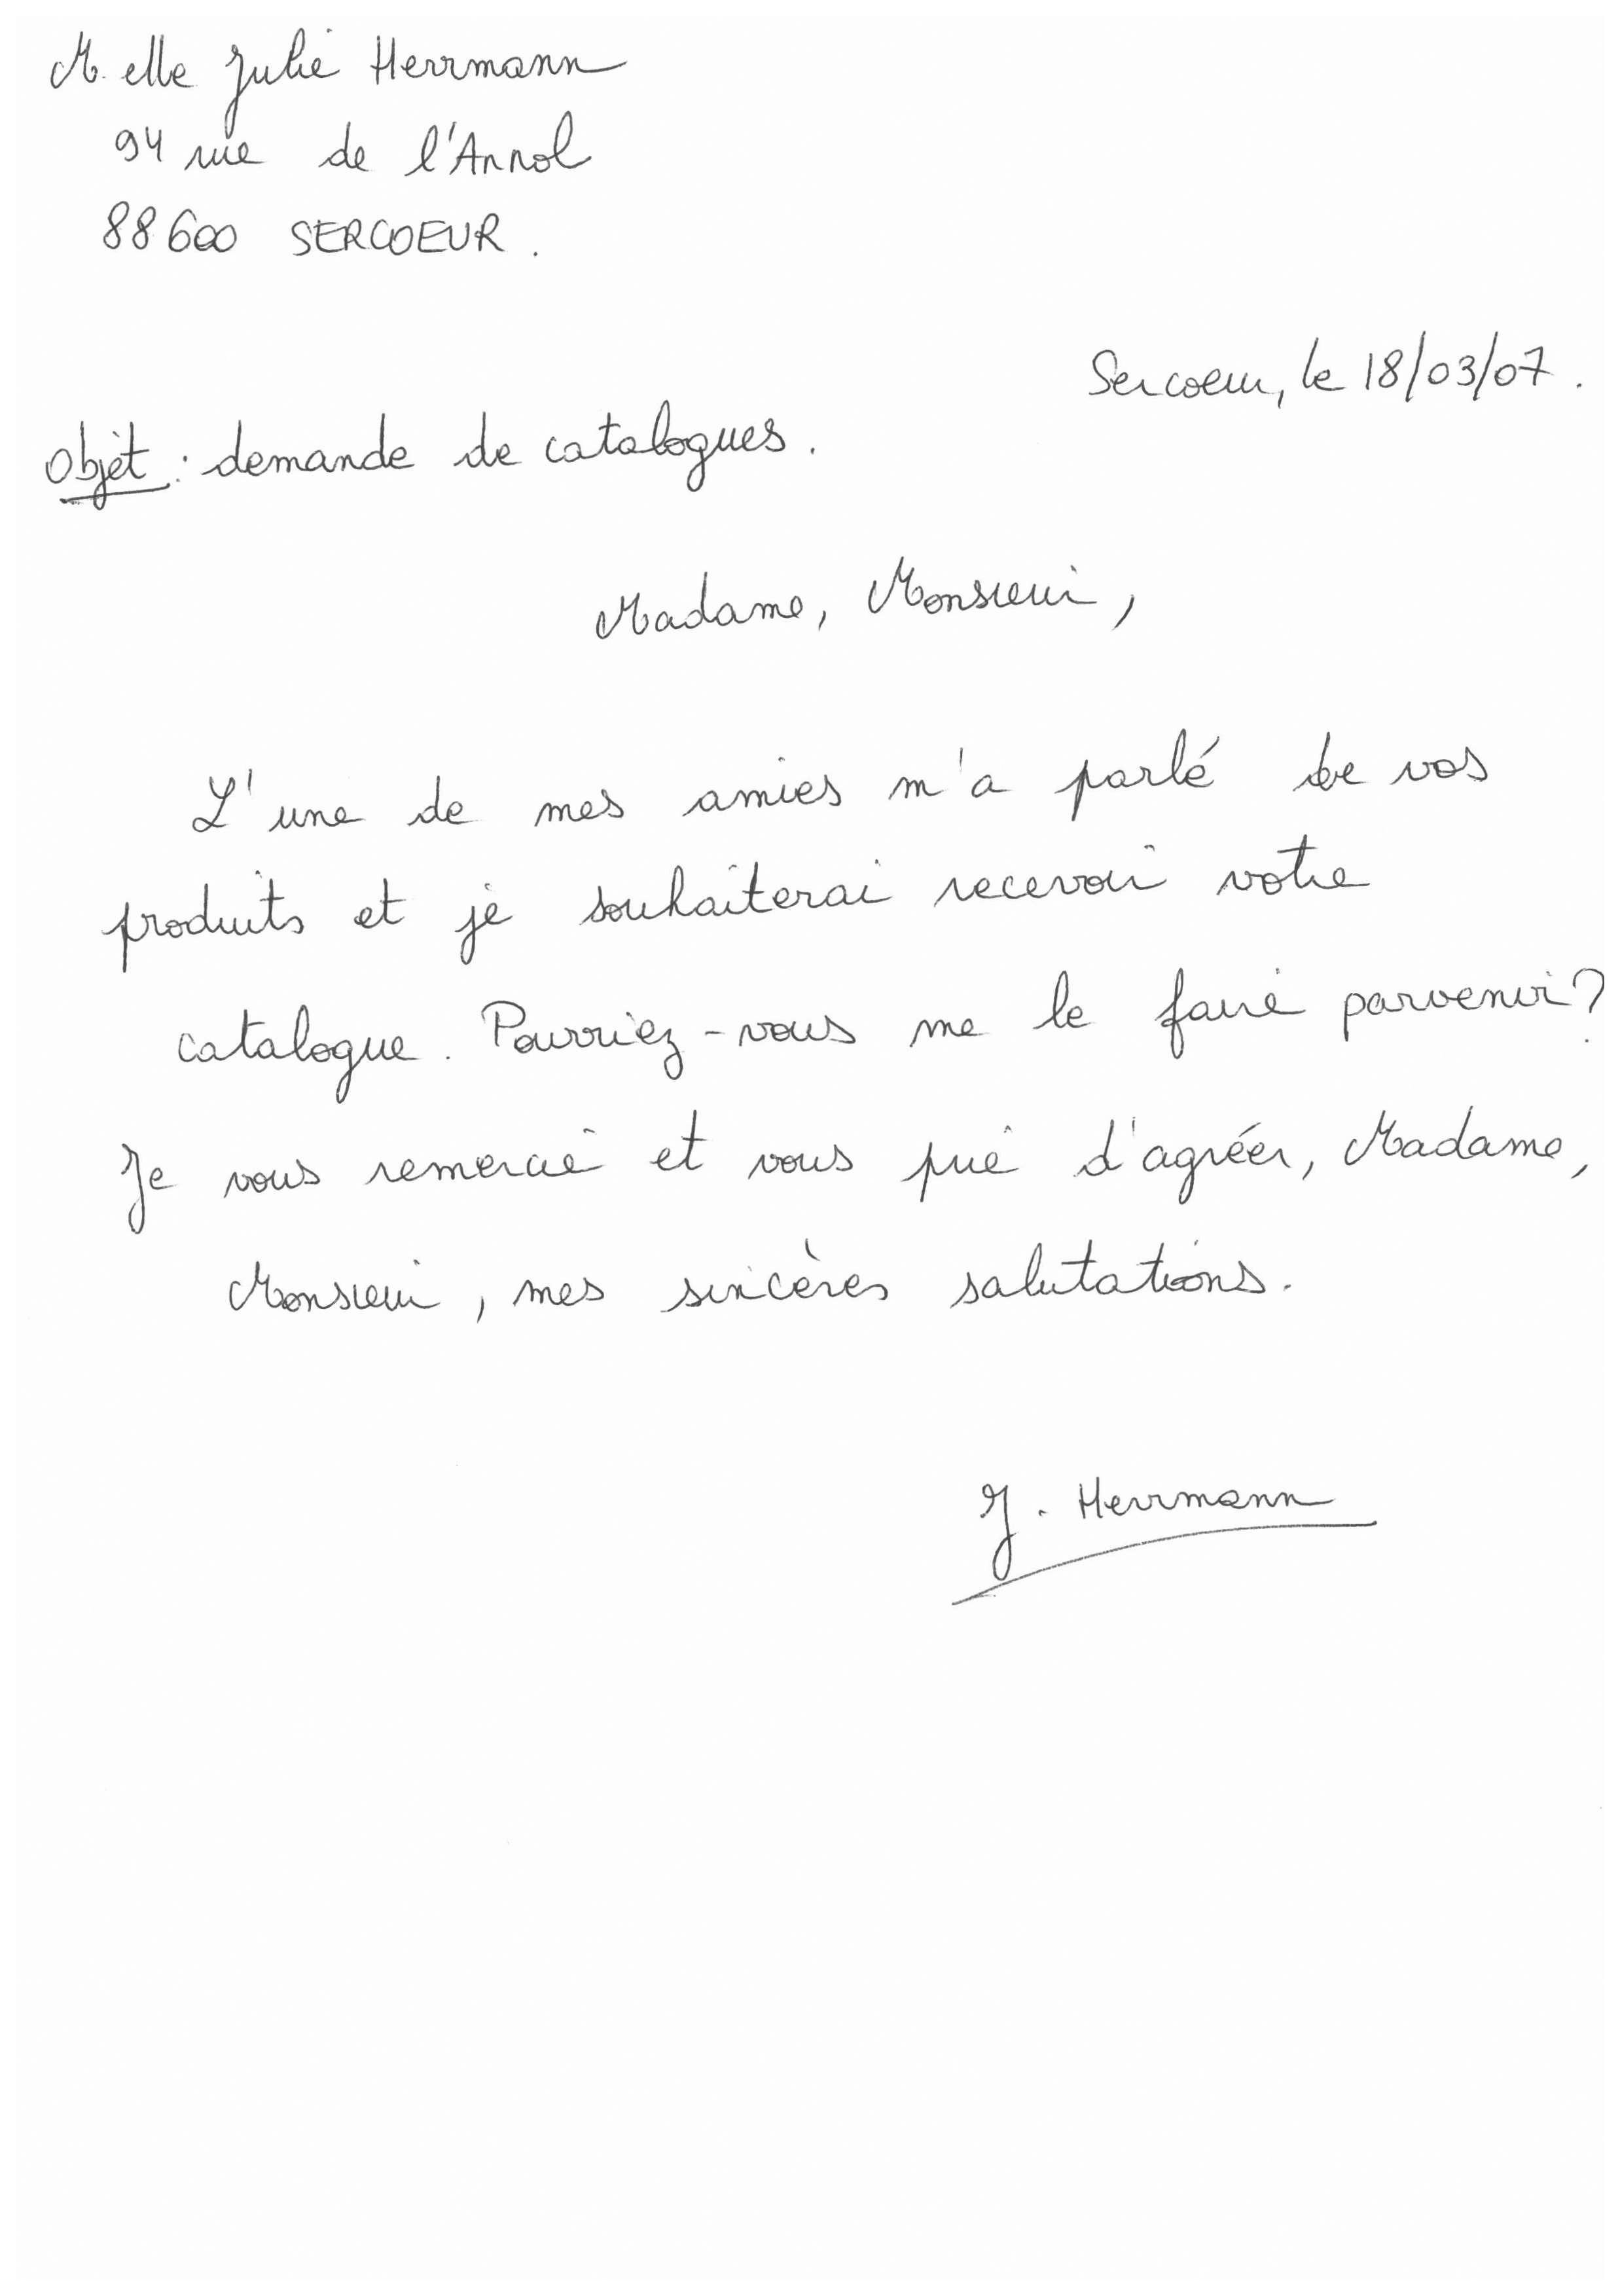 M.elle Julie Herrmann
94 rue de l'Annol
88600 SERCOEUR.
Sercoeur, le 18/03/07.
Objet : demande de catalogues.
Madame, Monsieur,
L'une de mes amies m'a parlé de vos
produits et je souhaiterai recevoir votre
catalogue. Pourriez-vous me le faire parvenir?
Je vous remercie et vous prie d'agréer, Madame,
Monsieur, mes sincères salutations.
J. Herrmann